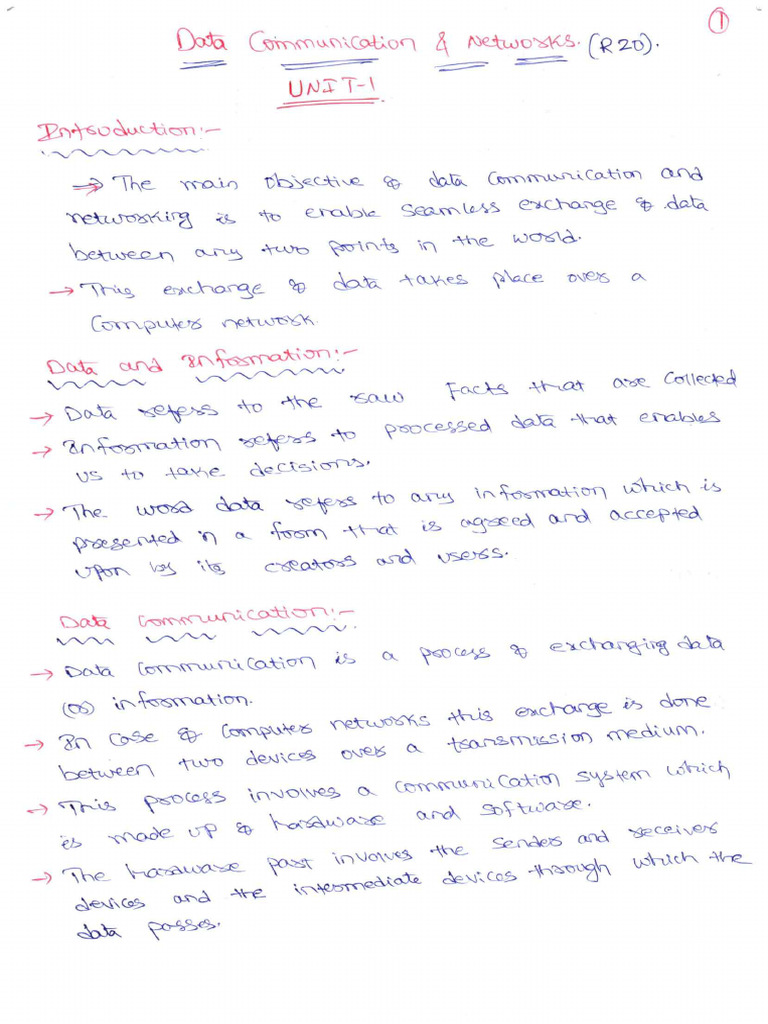 1
Data Communication & Networks. (R20).
UNIT-1
Introduction:-
→ The main objective of data communication and
networking is to enable seamless exchange of data
between any two points in the world.
→ This exchange of data takes place over a
Computer network.
Data and Information:-
→ Data refers to the raw Facts that are collected
→ Information refers to processed data that enables
us to take decisions.
→ The word data refers to any information which is
presented in a form that is agreed and accepted
upon by its creators and users.
Data Communication:-
→ Data Communication is a process of exchanging data
(or) information.
→ In case of Computer networks this exchange is done
between two devices over a transmission medium.
→ This process involves a communication system which
is made up of hardware and software.
→ The hardware part involves the sender and receiver
devices and the intermediate devices through which the
data passes.